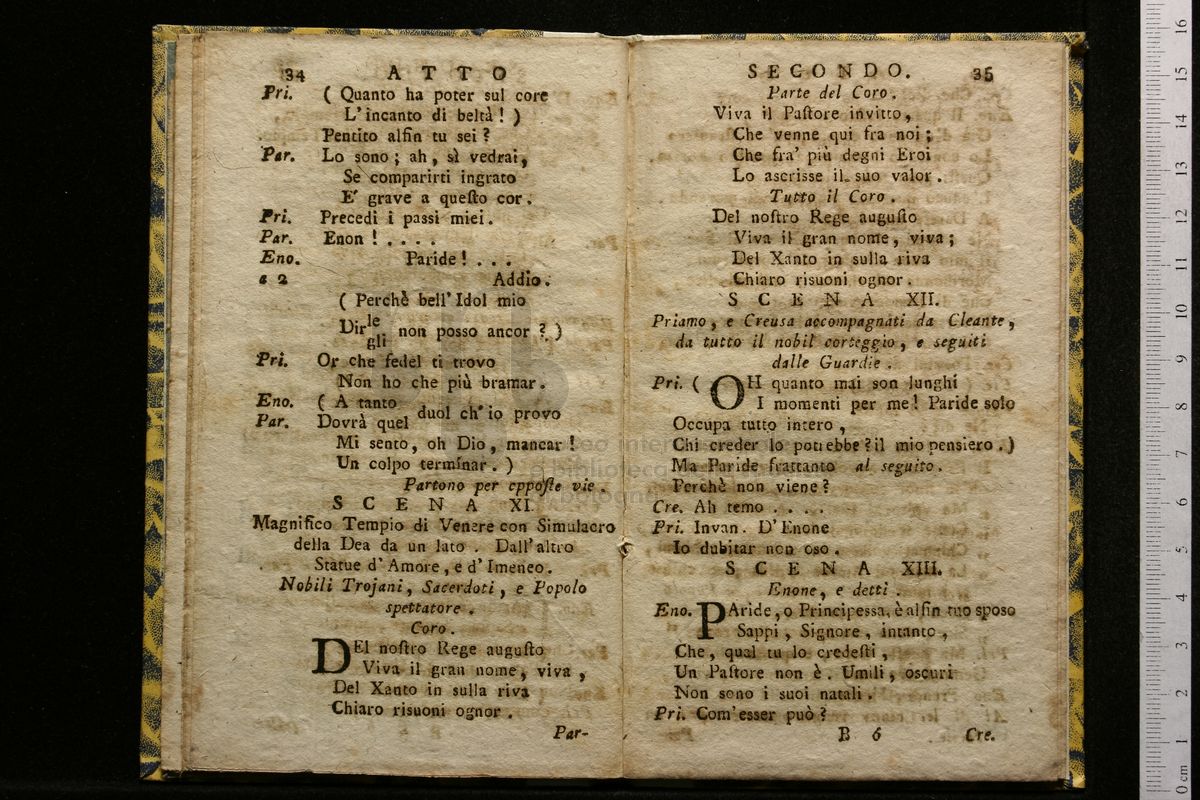 34 ATTO
Pri. ( Quanto ha poter sul core
L'incanto di beltà ! )
Pentito alfin tu sei ?
Par. Lo sono ; ah , sì vedrai,
Se comparirti ingrato
E' grave a queſto cor.
Pri. Precedi i passi miei.
Par. Enon ! . . . .
Eno. Paride ! . . .
a 2 Addio.
( Perchè bell' Idol mio
Dirle
gli non posso ancor ? )
Pri. Or che fedel ti trovo
Non ho che più bramar.
Eno. ( A tanto
Par. Dovrà quel duol ch' io provo
Mi sento, oh Dio, mancar !
Un colpo terminar. )
Partono per oppoſte vie.
SCENA XI.
Magnifico Tempio di Venere con Simulacro
della Dea da un lato . Dall' altro
Statue d' Amore, e d' Imeneo.
Nobili Trojani, Sacerdoti, e Popolo
spettatore.
Coro.
DEl noſtro Rege auguſto
Viva il gran nome, viva,
Del Xanto in sulla riva
Chiaro risuoni ognor.
Par-
SECONDO. 35
Parte del Coro.
Viva il Paſtore invitto,
Che venne qui fra noi ;
Che fra' più degni Eroi
Lo ascrisse il suo valor.
Tutto il Coro.
Del noſtro Rege auguſto
Viva il gran nome, viva ;
Del Xanto in sulla riva
Chiaro risuoni ognor.
SCENA XII.
Priamo, e Creusa accompagnati da Cleante,
da tutto il nobil corteggio, e seguiti
dalle Guardie.
Pri. ( OH quanto mai son lunghi
I momenti per me! Paride solo
Occupa tutto intero,
Chi creder lo potrebbe ? il mio pensiero. )
Ma Paride frattanto al seguito.
Perchè non viene ?
Cre. Ah temo . . . .
Pri. Invan. D' Enone
Io dubitar non oso.
SCENA XIII.
Enone, e detti.
Eno. PAride, o Principessa, è alfin tuo sposo
Sappi, Signore, intanto,
Che, qual tu lo credeſti,
Un Paſtore non è. Umili, oscuri
Non sono i suoi natali.
Pri. Com' esser può ?
B 6 Cre.